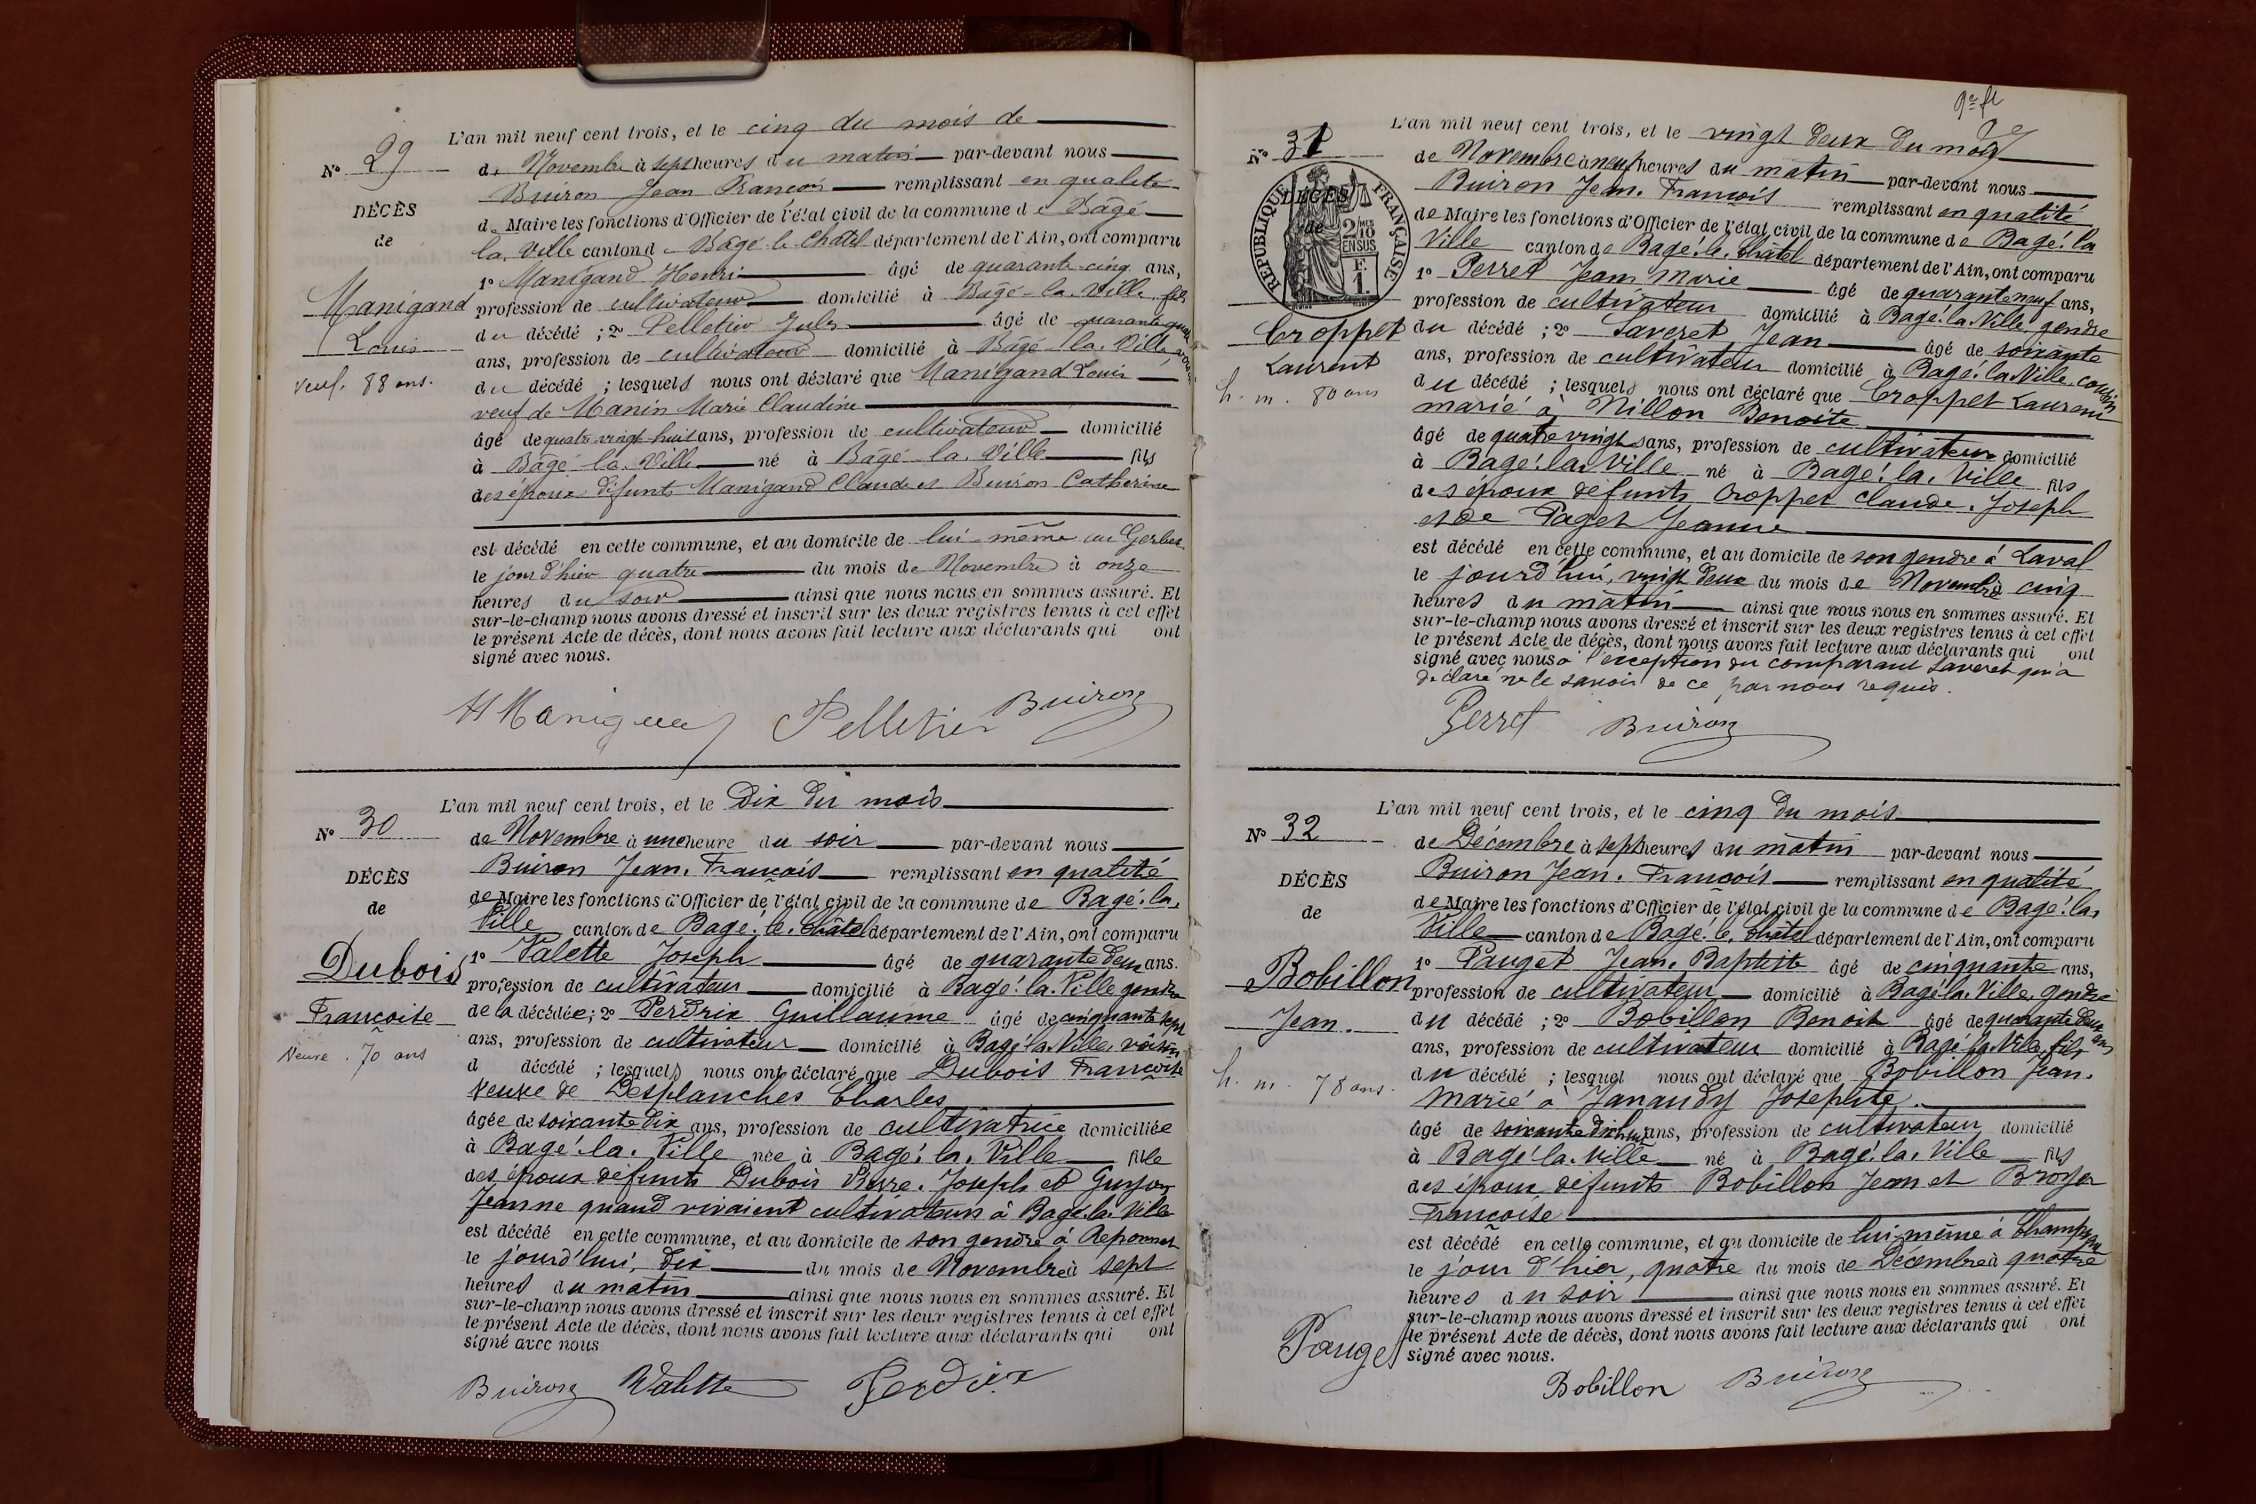 L'an mil neuf cent trois, et le cinq du mois de
Nº 29
de Novembre à sept heures du matin par-devant nous
Buiron Jean François remplissant en qualité
DÉCÈS
de Maire les fonctions d'Officier de l'état civil de la commune de Bâgé
de
la Ville canton de Bâgé le Châtel département de l'Ain, ont comparu
1º Manigand Henri âgé de quarante-cinq ans,
Manigand
profession de cultivateur domicilié à Bâgé-la-Ville fils
du décédé ; 2º Pelletier Jules âgé de quarante quatre
Louis
ans, profession de cultivateur domicilié à Bâgé la Ville voisin
veuf. 88 ans.
du décédé ; lesquels nous ont déclaré que Manigand Louis
veuf de Manin Marie Claudine
âgé de quatre vingt huit ans, profession de cultivateur domicilié
à Bâgé la Ville né à Bâgé la Ville fils
des époux défunts Manigand Claude et Buiron Catherine
est décédé en cette commune, et au domicile de lui-même au Gerbet
le jour d'hier quatre du mois de Novembre à onze
heures du soir ainsi que nous nous en sommes assuré. Et
sur-le-champ nous avons dressé et inscrit sur les deux registres tenus à cet effet
le présent Acte de décès, dont nous avons fait lecture aux déclarants qui ont
signé avec nous.
Pelletier Buiron
L'an mil neuf cent trois, et le Dix du mois
Nº 30
de Novembre à une heure du soir par-devant nous
Buiron Jean. François remplissant en qualité
DÉCÈS
de Maire les fonctions d'Officier de l'état civil de la commune de Bagé. la.
de
Ville canton de Bagé. le. Châtel département de l'Ain, ont comparu
1º Valette Joseph âgé de quarante deux ans.
Dubois
profession de cultivateur domicilié à Bagé. la. Ville gendre
de la décédée ; 2º Perdrix Guillaume âgé de cinquante sept
Françoise
ans, profession de cultivateur domicilié à Bagé la Ville, voisin
Veuve. 70 ans
d décédé ; lesquels nous ont déclaré que Dubois Françoise
Veuve de Desplanches Charles
âgée de soixante dix ans, profession de cultivatrice domiciliée
à Bagé. la. Ville née à Bagé. la. Ville fille
des époux défunts Dubois Pierre. Joseph et Guyon
Jeanne quand vivaient cultivateurs à Bagé. la. Ville
est décédé en cette commune, et au domicile de son gendre à
le jourd'hui, dix du mois de Novembre à sept
heures du matin ainsi que nous nous en sommes assuré. Et
sur-le-champ nous avons dressé et inscrit sur les deux registres tenus à cet effet
le présent Acte de décès, dont nous avons fait lecture aux déclarants qui ont
signé avec nous
Buiron Valette Perdrix
L'an mil neuf cent trois, et le vingt deux du mois
Nº 31
de Novembre à neuf heures du matin par-devant nous
Buiron Jean. François remplissant en qualité
DÉCÈS
de
RÉPUBLIQUE FRANÇAISE
2/10 EN SUS
F. 1.
de Maire les fonctions d'Officier de l'état civil de la commune de Bagé. la
Ville canton de Bagé. le. Châtel département de l'Ain, ont comparu
1º Perret Jean Marie âgé de quarante neuf ans,
profession de cultivateur domicilié à Bagé. la. Ville, gendre
Croppet
du décédé ; 2º Saveret Jean âgé de soixante
Laurent
ans, profession de cultivateur domicilié à Bagé. la Ville, cousin
h. m. 80 ans
du décédé ; lesquels nous ont déclaré que Croppet Laurent
marié à Nillon Benoite
âgé de quatre vingts ans, profession de cultivateur domicilié
à Bagé. la. Ville né à Bagé. la. Ville fils
des époux défunts Croppet Claude. Joseph
et de Paget Jeanne
est décédé en cette commune, et au domicile de son gendre à Laval
le jourd'hui, vingt deux du mois de Novembre à cinq
heures du matin ainsi que nous nous en sommes assuré. Et
sur-le-champ nous avons dressé et inscrit sur les deux registres tenus à cet effet
le présent Acte de décès, dont nous avons fait lecture aux déclarants qui ont
signé avec nous à l'exception du comparant Saveret qui a
déclaré ne le savoir de ce par nous requis.
Perret Buiron
L'an mil neuf cent trois, et le cinq du mois
Nº 32
de Décembre à sept heures du matin par-devant nous
Buiron Jean. François remplissant en qualité
DÉCÈS
de Maire les fonctions d'Officier de l'état civil de la commune de Bagé. la.
de
Ville canton de Bagé. le. Châtel département de l'Ain, ont comparu
1º Pauget Jean. Baptiste âgé de cinquante ans,
Bobillon
profession de cultivateur domicilié à Bagé la. Ville, gendre
Jean.
du décédé ; 2º Bobillon Benoit âgé de quarante deux ans
ans, profession de cultivateur domicilié à Bagé la Ville, fils
h. m. 78 ans.
du décédé ; lesquel nous ont déclaré que Bobillon Jean.
Marié à Janaudy Josephte.
âgé de soixante dix huit ans, profession de cultivateur domicilié
à Bagé la. Ville né à Bagé. la. Ville fils
des époux défunts Bobillon Jean et Broyer
Françoise
est décédé en cette commune, et au domicile de lui même à
le jour d'hier, quatre du mois de Décembre à quatre
heures du soir ainsi que nous nous en sommes assuré. Et
sur-le-champ nous avons dressé et inscrit sur les deux registres tenus à cet effet
le présent Acte de décès, dont nous avons fait lecture aux déclarants qui ont
signé avec nous.
Pauget
Bobillon Buiron